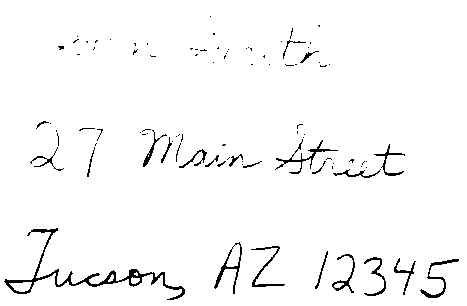 Smith
27 Main Street
Tucson, AZ 12345